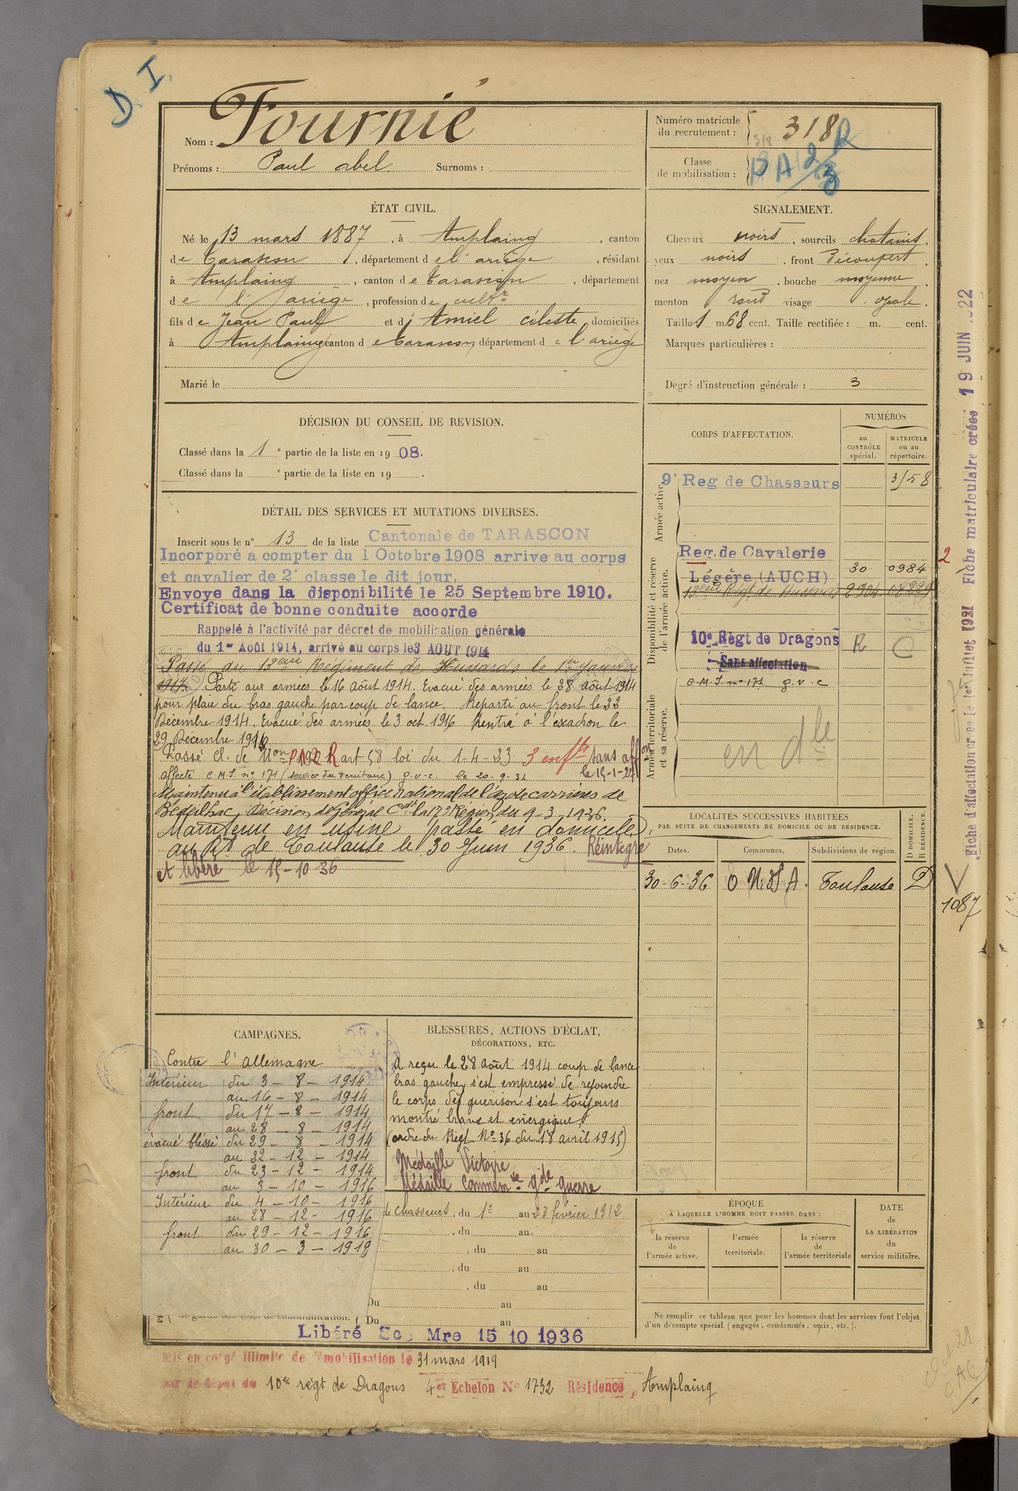 D. I.
Nom : Fournié
Prénoms : Paul Abel Surnoms :
Numéro matricule du recrutement : 318
Classe de mobilisation :
ÉTAT CIVIL.
Né le 13 mars 1887, à Amplaing, canton
de Tarascon, département de l'ariège, résidant
à Amplaing, canton de Tarascon, département
de l'ariège, profession de cultr
fils de Jean Paul et d'Amiel Céleste domiciliés
à Amplaing canton de Tarascon département de l'ariège
Marié le
SIGNALEMENT.
Cheveux noirs, sourcils chatains,
yeux noirs, front Découvert,
nez moyen, bouche moyenne
menton rond visage ovale.
Taille 1 m 68 cent. Taille rectifiée : m. cent.
Marques particulières :
Degré d'instruction générale : 3
DÉCISION DU CONSEIL DE REVISION.
Classé dans la 1e partie de la liste en 1908.
Classé dans la e partie de la liste en 19 .
CORPS D'AFFECTATION.
NUMÉROS
au CONTRÔLE spécial.
MATRICULE ou au répertoire.
Armée active.
9e Reg de Chasseurs 3158
Disponibilité et réserve de l'armée active.
Reg. de Cavalerie
Légère (AUCH) 30 0984
10e Règt de Dragons R
Sans affectation
C.M.I. no 171 g.v.c
Armée territoriale et sa réserve.
en dlle
DÉTAIL DES SERVICES ET MUTATIONS DIVERSES.
Inscrit sous le no 13 de la liste Cantonale de TARASCON
Incorporé a compter du 1 Octobre 1908 arrive au corps
et cavalier de 2e classe le dit jour.
Envoye dans la disponibilité le 25 Septembre 1910.
Certificat de bonne conduite accorde
Rappelé à l'activité par décret de mobilisation générale
du 1er Août 1914, arrivé au corps le 3 AOUT 1914
Passé au Régiment de Hussards le 1er Janvier
1914. Parti aux armées le 16 Août 1914. Evacué des armées le 28 août 1914
pour plaie du bras gauche par coup de lance. Reparti au front le 23
Décembre 1914. Evacué des armées le 3 oct. 1916 Rentré à l'escadron le
29 Décembre 1916
Passé Cl. de Mon art 58 loi du 1-4-23 3 enfts sans aff
affecté C.M.I. no 171 (service du territoire) g.v.c le 20-9-32
Maintenu à l'établissement office national de l'az de carrières de
Bédeilhac, Décision du Général Cdt la 17e Région du 9-3-1936.
Maintenu en usine passé en domicile
au Rt de Toulouse le 30 Juin 1936. Réintégré
et libéré le 15-10-36
LOCALITÉS SUCCESSIVES HABITÉES
PAR SUITE DE CHANGEMENTS DE DOMICILE OU DE RÉSIDENCE.
Dates. Communes. Subdivisions de région. D DOMICILE. R RÉSIDENCE.
30-6-36 Toulouse D
1087
Fiche d'affectation créée le 1er Juillet 1921 Fiche matriculaire créée 19 JUIN 1922
CAMPAGNES.
Contre l'Allemagne
Intérieur du 3 - 8 - 1914
au 16 - 8 - 1914
front du 17 - 8 - 1914
au 28 - 8 - 1914
évacué blessé du 29 - 8 - 1914
au 22 - 12 - 1914
front du 23 - 12 - 1914
au 3 - 10 - 1916
Intérieur du 4 - 10 - 1916
au 28 - 12 - 1916
front du 29 - 12 - 1916
au 30 - 3 - 1919
BLESSURES, ACTIONS D'ÉCLAT,
DÉCORATIONS, ETC.
A reçu le 28 Août 1914 coup de lance
bras gauche, s'est empressé de rejoindre
le corps dès guérison s'est toujours
montré brave et énergique.
(ordre du Régt No 36 du 18 avril 1915)
Médaille Victoire
Médaille Commemve gde guerre
de Chasseurs, du 1er au 23 février 1912
, du au
, du au
, du au
, du au
Du au
Du au
ÉPOQUE
À LAQUELLE L'HOMME DOIT PASSER DANS :
la réserve de l'armée active.
l'armée territoriale.
la réserve de l'armée territoriale
DATE de LA LIBÉRATION du service militaire.
Ne remplir ce tableau que pour les hommes dont les services font l'objet
d'un décompte spécial (engagés, condamnés, omis, etc.).
Libéré Sce Mre 15 10 1936
Mis en congé illimité de démobilisation le 31 mars 1919
par le dépôt du 10e régt de Dragons 4er Echelon No 1732 Résidence, Amplaing